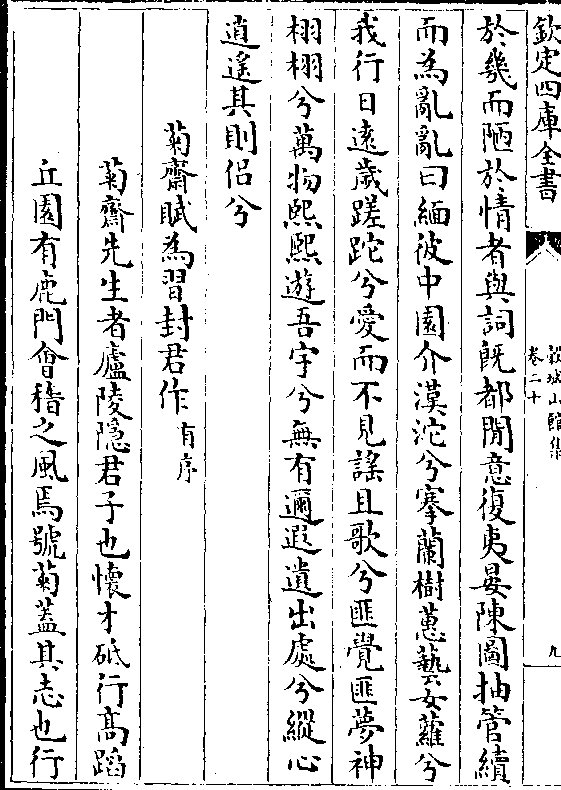 欽定四庫全書
穀城山館集
卷二十
九
於幾而陋於情者與詞旣都閒意復夷晏陳圖抽管續
而為亂亂曰緬彼中園介漠沱兮搴蘭樹蕙藝女蘿兮
我行日遠歲蹉跎兮愛而不見謠且歌兮匪覺匪夢神
栩栩兮萬物熙熙遊吾宇兮無有邇遐遺出處兮縱心
逍遙其則侣兮
菊齋賦為習封君作有序
菊齋先生者廬陵隱君子也懷才砥行髙蹈
丘園有鹿門會稽之風焉號菊蓋其志也行